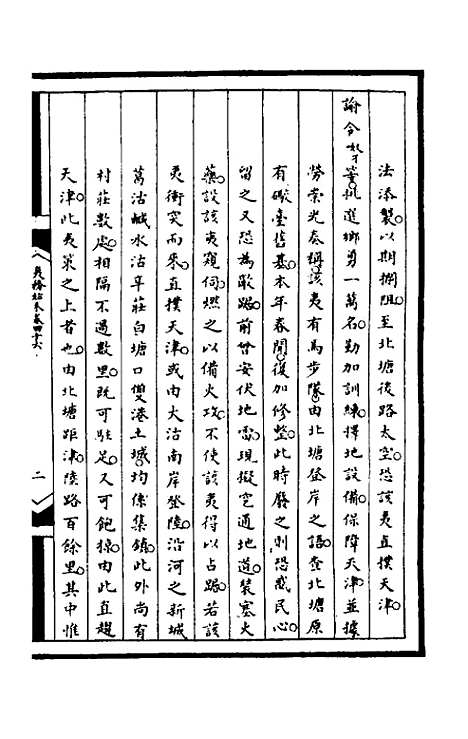 法添製以期攔阻至北塘後路太空恐該夷直撲天津
諭令奴才等挑選鄉勇一萬名勤加訓練擇地設備保障天津並據
勞崇光奏稱該夷有馬步隊由北塘登岸之語查北塘原
有礮臺舊基本年春間復加修整此時廢之則恐惑民心
留之又恐為敵踞前曾安伏地雷現擬空通地道裝塞火
藥設該夷窺伺燃之以備火攻不使該夷得以占踞若該
夷衝突而來直撲天津或由大沽南岸登陸沿河之新城
葛沽鹹水沽早莊白塘口雙港土城均係集鎮此外尚有
村莊數處相隔不過數里既可駐足又可飽掠由此直趨
天津此夷策之上者也由北塘距津陸路百餘里其中惟
夷務始末卷四十六
二